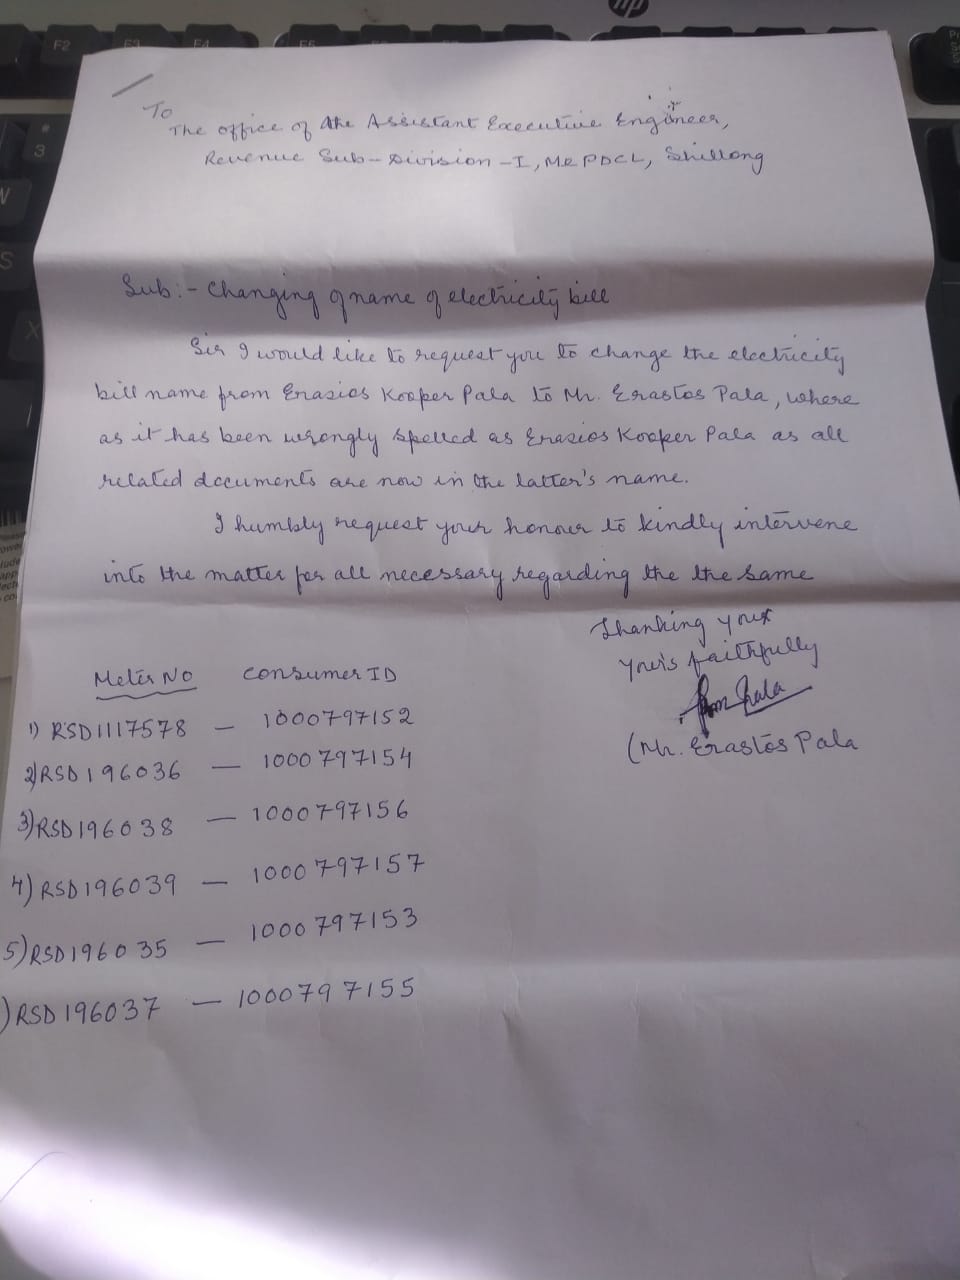 hp
F2 F3 F4 F5
3
W
S
X
To
The office of the Assistant Executive Engineer,
Revenue Sub-Division-I, MePDCL, Shillong
Sub:- Changing of name of electricity bill
Sir I would like to request you to change the electricity
bill name from Erasios Kooper Pala to Mr. Erastos Pala, where
as it has been wrongly spelled as Erasios Kooper Pala as all
related documents are now in the latter's name.
I humbly request your honour to kindly intervene
into the matter for all necessary regarding the the same
Thanking your
Your's faithfully
Pala
(Mr. Erastos Pala
Meter No Consumer ID
1) RSD1117578 — 1000797152
2) RSD196036 — 1000797154
3) RSD196038 — 1000797156
4) RSD196039 — 1000797157
5) RSD196035 — 1000797153
) RSD196037 — 1000797155